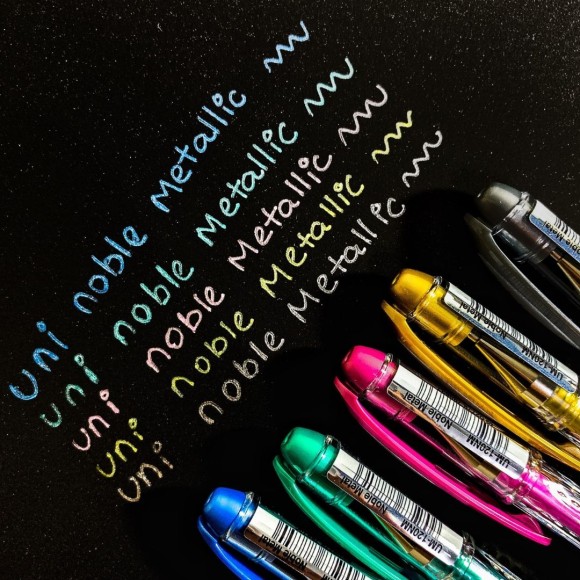 uni noble Metallic
uni noble Metallic
uni noble Metallic
uni noble Metallic
uni noble Metallic
Noble Metal
Noble Metal
UM-120NM
Noble Metal
UM-120NM
Noble Metal
UM-120NM
Noble Metal